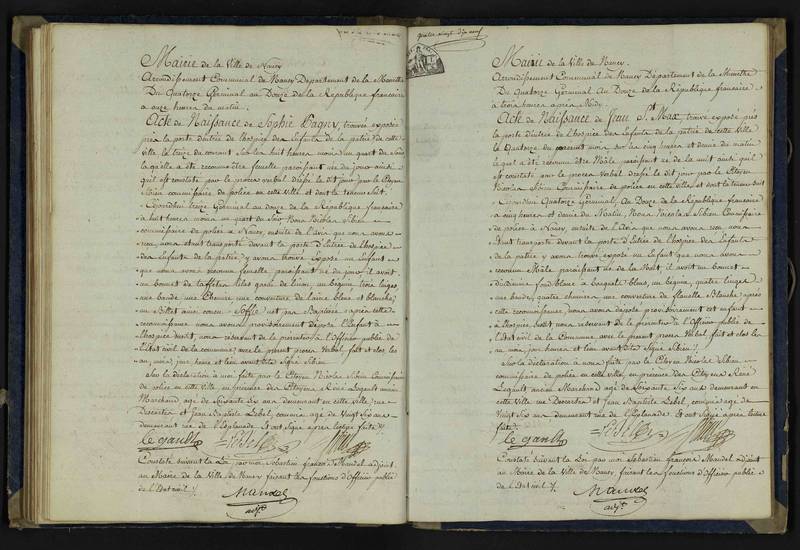 quatre vingt dix neuf
Mairie de la Ville de Nancy
Arrondissement Communal de Nancy Département de la Meurthe
Du Quatorze Germinal au Douze de la République française
à onze heures du matin.
Acte de Naissance de Sophie Pagny, trouvée exposée
près la porte d'entrée de l'hospice des Enfants de la patrie de cette
Ville, le treize du courant sur les huit heures moins un quart du soir
laquelle a été reconnue être femelle paraissant née du jour
qu'il est constaté par le procès verbal dressé le dit jour par le Citoyen
Sibien commissaire de police en cette Ville et dont la teneur suit.
Cejourd'hui treize Germinal au douze de la République française
à huit heures moins un quart du soir Nous Nicolas Sibien
commissaire de police à Nancy, ensuite de l'avis que nous avons
reçu, nous étant transporté devant la porte d'entrée de l'hospice
des Enfants de la patrie, y avons trouvé exposé un Enfant
que nous avons reconnu femelle paraissant né du jour, il avait
un bonnet de taffetas lilas garni de linon, un béguin, trois linges,
une bande, une Chemise, une couverture de laine bleue et blanche,
un Billet avec ces mots Soffie est pas Baptisée; après cette
reconnaissance nous avons provisoirement déposé l'Enfant à
l'hospice susdit, nous réservant de le présenter à l'Officier public de
l'Etat civil de la commune, avec le présent procès Verbal, fait et clos les
an, mois, jour, heure et lieu avant dits Signé Sibien.
Sur la déclaration à moi faite par le Citoyen Nicolas Sibien Commissaire
de police en cette Ville, en présence des Citoyens René Legault ancien
Marchand agé de Soixante Six ans demeurant en cette Ville, rue
Descartes et Jean Baptiste Lebel, commis agé de Vingt Six ans
demeurant rue de l'Esplanade. Et ont Signé après lecture faite
Legault
Constaté suivant la Loi par moi Sébastien françois Mandel adjoint
au Maire de la Ville de Nancy faisant les fonctions d'Officier public
de l'Etat civil
Mandel
adjt
Mairie de la Ville de Nancy.
Arrondissement Communal de Nancy Département de la Meurthe
Du Quatorze Germinal au Douze de la République française
à trois heures après Midy.
Acte de Naissance de Jean St Max, trouvé exposé près
la porte d'entrée de l'hospice des Enfants de la patrie de cette Ville
le Quatorze du courant mois, sur les cinq heures et demie du matin
lequel a été reconnu être Mâle paraissant né de la nuit ainsi qu'il
est constaté par le procès Verbal dressé le dit jour par le Citoyen
Nicolas Sibien Commissaire de police en cette Ville, et dont la teneur suit
Cejourd'hui Quatorze Germinal, Au Douze de la République française
à cinq heures et demie du Matin, Nous Nicolas Sibien Commissaire
de police à Nancy, ensuite de l'avis que nous avons reçu, nous
étant transporté devant la porte d'Entrée de l'hospice des Enfants
de la patrie y avons trouvé exposé un Enfant que nous avons
reconnu Mâle paraissant né de la Nuit, il avait un bonnet
d'indienne fond blanc à bouquets bleus, un béguin, quatre linges
une bande, quatre chemises, une couverture de flanelle Blanche; après
cette reconnaissance, nous avons déposé provisoirement cet enfant
à l'hospice susdit nous réservant de le présenter à l'Officier public de
l'Etat civil de la Commune, avec le présent procès Verbal, fait et clos les
an mois, jour, heure et lieu avant dits. Signé Sibien
Sur la déclaration à nous faite par le Citoyen Nicolas Sibien
commissaire de police en cette Ville, en présence des Citoyens René
Legault, ancien Marchand agé de Soixante Six ans demeurant en
cette Ville rue Descartes et Jean Baptiste Lebel, commis agé de
Vingt Six ans demeurant rue de l'Esplanade. Et ont Signé après lecture
faite
Legault
Constaté suivant la Loi par moi Sébastien françois Mandel adjoint
au Maire de la Ville de Nancy, faisant les fonctions d'Officier public
de l'Etat civil
Mandel
adjt